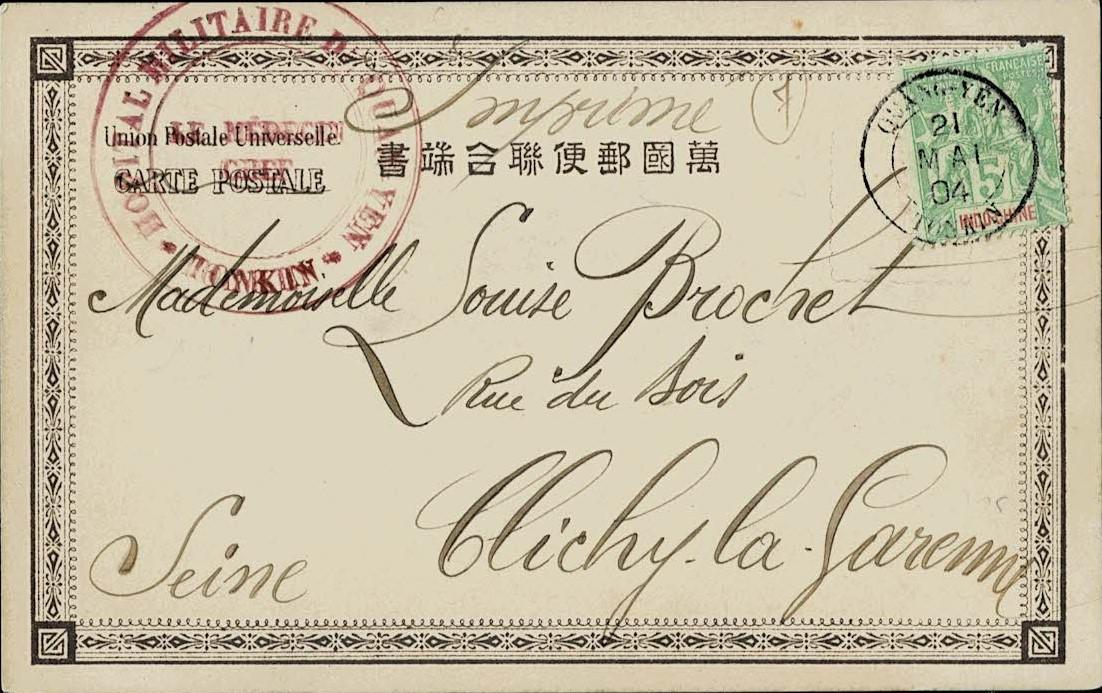 HOPITAL MILITAIRE DE QUANG YEN
* TONKIN *
LE MÉDECIN
CHEF
Imprimé
Union Postale Universelle.
萬國郵便聯合端書
CARTE POSTALE
FRANÇAISE
POSTES
5
INDOCHINE
QUANG-YEN
21
MAI
04
TONKIN
Mademoiselle Louise Brochet
Rue du Bois
Clichy-la-Garenne
Seine